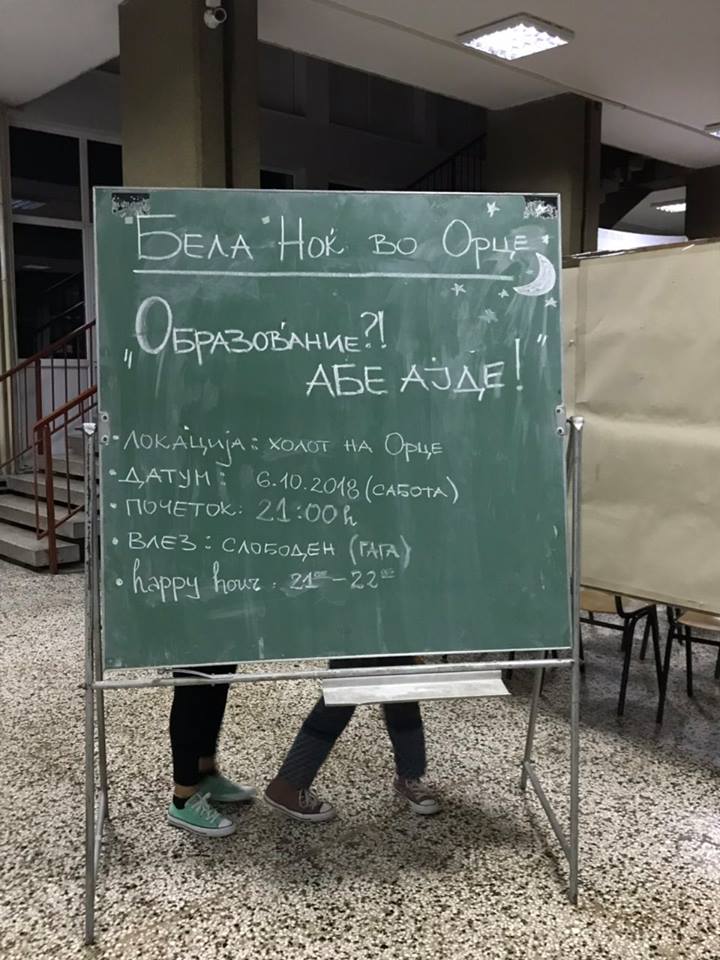 Бела Ноќ во Орце
„Образование?!
абе ајде!"
• локација: холот на Орце
• датум: 6.10.2018 (сабота)
• почеток: 21:00h
• влез: слободен (гага)
• happy hour: 21⁰⁰-22⁰⁰